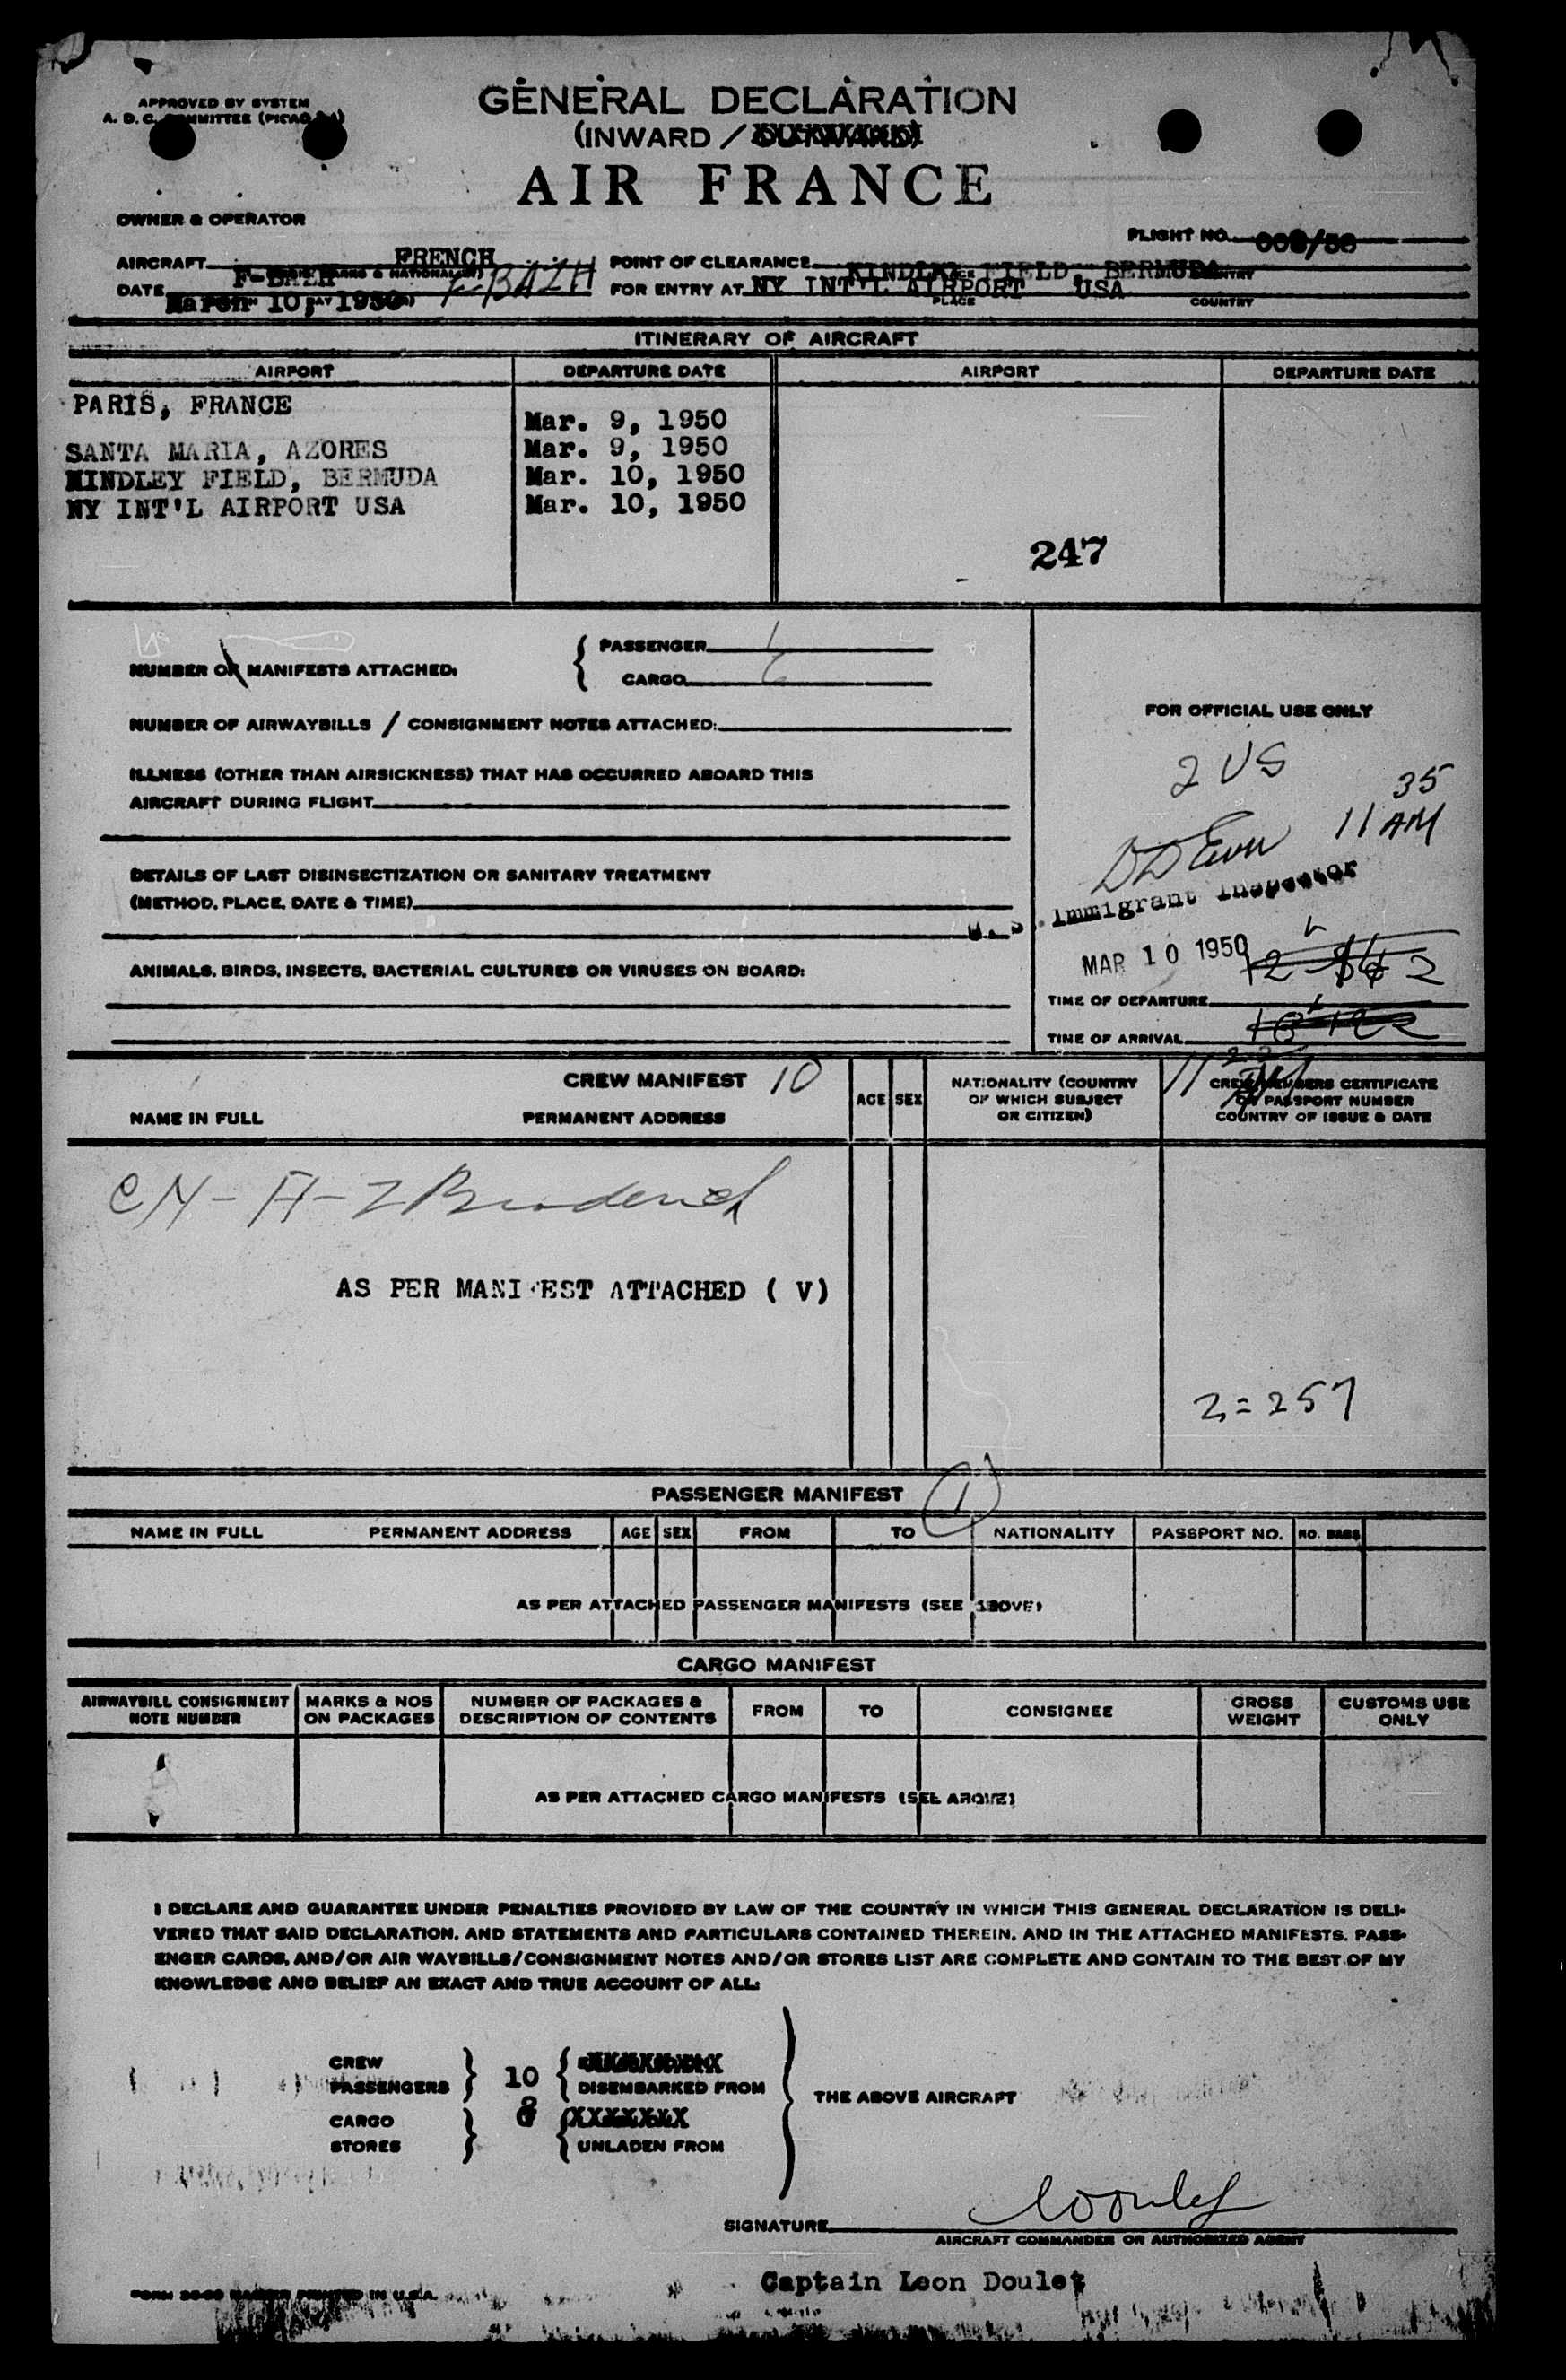 APPROVED BY SYSTEM
A. D. C. COMMITTEE (PICAO
GENERAL DECLARATION
(INWARD / OUTWARD)
AIR FRANCE
OWNER & OPERATOR
FLIGHT NO.
AIRCRAFT FRENCH
F-BAZH F-BAZH
POINT OF CLEARANCE KINDLEY FIELD, BERMUDA
DATE March 10, 1950
FOR ENTRY AT NY INT'L AIRPORT USA
PLACE COUNTRY
ITINERARY OF AIRCRAFT
AIRPORT DEPARTURE DATE AIRPORT DEPARTURE DATE
PARIS, FRANCE Mar. 9, 1950
SANTA MARIA, AZORES Mar. 9, 1950
KINDLEY FIELD, BERMUDA Mar. 10, 1950
NY INT'L AIRPORT USA Mar. 10, 1950
247
NUMBER OF MANIFESTS ATTACHED:
PASSENGER 1
CARGO
NUMBER OF AIRWAYBILLS / CONSIGNMENT NOTES ATTACHED:
ILLNESS (OTHER THAN AIRSICKNESS) THAT HAS OCCURRED ABOARD THIS
AIRCRAFT DURING FLIGHT
DETAILS OF LAST DISINSECTIZATION OR SANITARY TREATMENT
(METHOD, PLACE, DATE & TIME)
ANIMALS, BIRDS, INSECTS, BACTERIAL CULTURES OR VIRUSES ON BOARD:
FOR OFFICIAL USE ONLY
2 US
11 35 AM
U. S. Immigrant Inspector
MAR 10 1950
TIME OF DEPARTURE
TIME OF ARRIVAL
CREW MANIFEST 10
NAME IN FULL PERMANENT ADDRESS
AGE SEX
NATIONALITY (COUNTRY
OF WHICH SUBJECT
OR CITIZEN)
CREW MEMBERS CERTIFICATE
OR PASSPORT NUMBER
COUNTRY OF ISSUE & DATE
AS PER MANIFEST ATTACHED ( V)
2=257
PASSENGER MANIFEST 1
NAME IN FULL PERMANENT ADDRESS AGE SEX FROM TO NATIONALITY PASSPORT NO. NO. BAGS
AS PER ATTACHED PASSENGER MANIFESTS (SEE ABOVE)
CARGO MANIFEST
AIRWAYBILL CONSIGNMENT
NOTE NUMBER
MARKS & NOS
ON PACKAGES
NUMBER OF PACKAGES &
DESCRIPTION OF CONTENTS
FROM TO CONSIGNEE
GROSS
WEIGHT
CUSTOMS USE
ONLY
AS PER ATTACHED CARGO MANIFESTS (SEE ABOVE)
I DECLARE AND GUARANTEE UNDER PENALTIES PROVIDED BY LAW OF THE COUNTRY IN WHICH THIS GENERAL DECLARATION IS DELI-
VERED THAT SAID DECLARATION, AND STATEMENTS AND PARTICULARS CONTAINED THEREIN, AND IN THE ATTACHED MANIFESTS, PASS-
ENGER CARDS, AND/OR AIR WAYBILLS/CONSIGNMENT NOTES AND/OR STORES LIST ARE COMPLETE AND CONTAIN TO THE BEST OF MY
KNOWLEDGE AND BELIEF AN EXACT AND TRUE ACCOUNT OF ALL:
CREW
PASSENGERS 10 DISEMBARKED FROM
THE ABOVE AIRCRAFT
CARGO XXXXXXX
STORES UNLADEN FROM
SIGNATURE
AIRCRAFT COMMANDER OR AUTHORIZED AGENT
Captain Leon Doulet